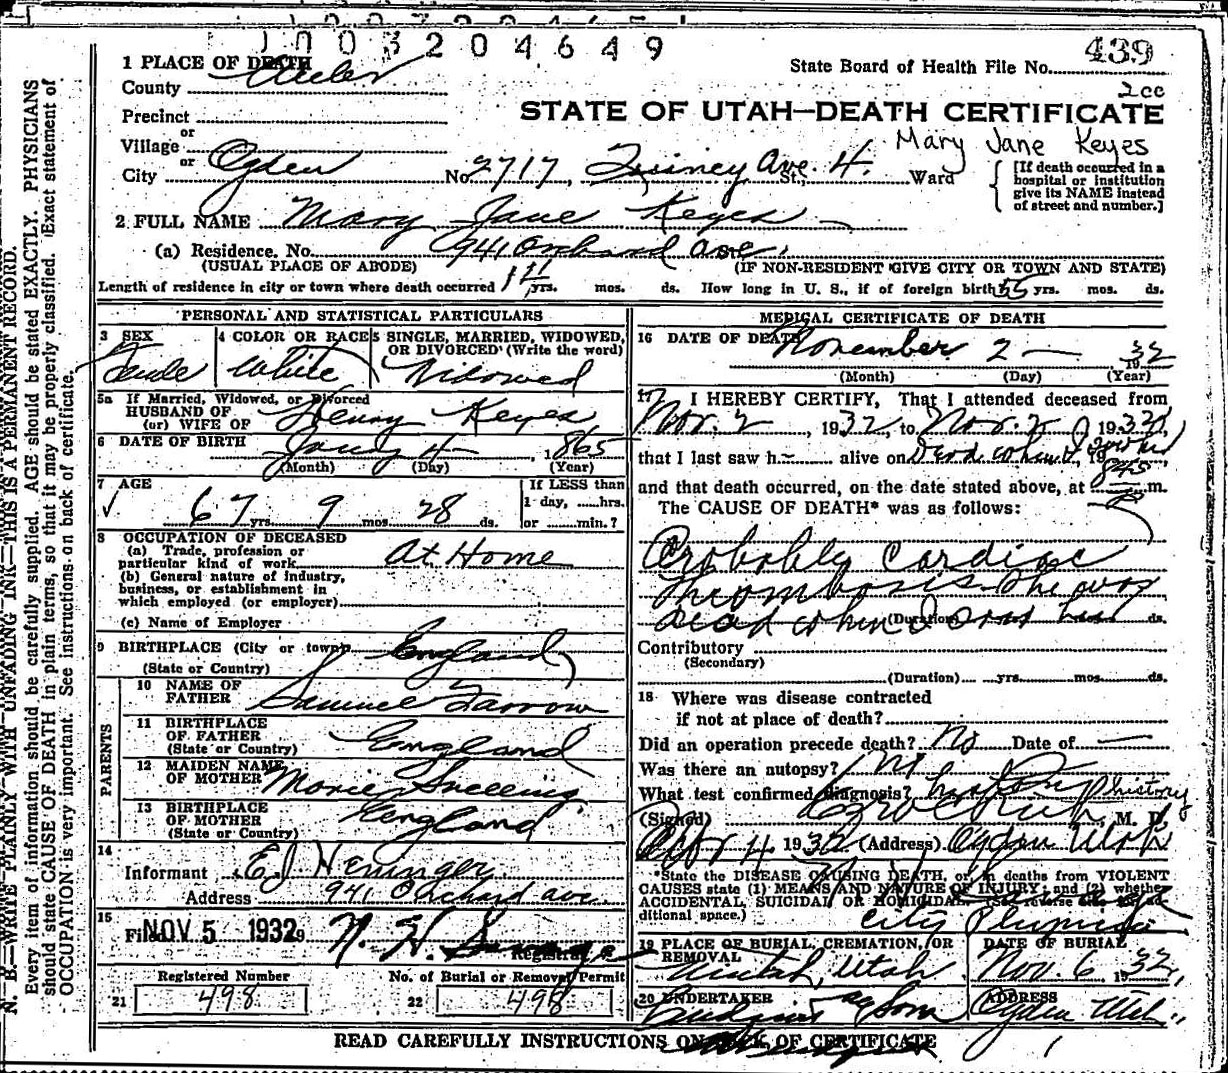 1003204649
439
1 PLACE OF DEATH
State Board of Health File No.
County Weber
2cc
Precinct
STATE OF UTAH—DEATH CERTIFICATE
or
Village
Mary Jane Keyes
or
City Ogden No. 2717, Quincy Ave. St., 4. Ward
[If death occurred in a hospital or institution give its NAME instead of street and number.]
2 FULL NAME Mary Jane Keyes
(a) Residence. No. 941 Orchard Ave.
(USUAL PLACE OF ABODE) (IF NON-RESIDENT GIVE CITY OR TOWN AND STATE)
Length of residence in city or town where death occurred yrs. mos. ds. How long in U. S., if of foreign birth 55 yrs. mos. ds.
PERSONAL AND STATISTICAL PARTICULARS
3 SEX 4 COLOR OR RACE 5 SINGLE, MARRIED, WIDOWED, OR DIVORCED (Write the word)
Female White Widowed
5a If Married, Widowed, or Divorced
HUSBAND OF
(or) WIFE OF Henry Keyes
6 DATE OF BIRTH Jany 4 1865
(Month) (Day) (Year)
7 AGE
If LESS than
1 day, hrs.
67 yrs. 9 mos. 28 ds. or min.?
8 OCCUPATION OF DECEASED
(a) Trade, profession or
particular kind of work At Home
(b) General nature of industry,
business, or establishment in
which employed (or employer)
(c) Name of Employer
9 BIRTHPLACE (City or town) England
(State or Country)
PARENTS
10 NAME OF
FATHER Samuel Farrow
11 BIRTHPLACE
OF FATHER England
(State or Country)
12 MAIDEN NAME
OF MOTHER Snelling
13 BIRTHPLACE
OF MOTHER England
(State or Country)
14
Informant E.J. Heninger
Address 941 Orchard ave.
15
Filed NOV 5 1932 N. H. Savage
Registrar
Registered Number No. of Burial or Removal Permit
21 498 22 498
MEDICAL CERTIFICATE OF DEATH
16 DATE OF DEATH November 2 — 1932
(Month) (Day) (Year)
17 I HEREBY CERTIFY, That I attended deceased from
Nov. 2, 1932, to Nov. 2 1932,
that I last saw h alive on Dead when I saw her, 19
and that death occurred, on the date stated above, at 845 m.
The CAUSE OF DEATH* was as follows:
Probably cardiac
Thrombosis. She was
dead when I saw her
(Duration) ds.
Contributory
(Secondary)
(Duration) yrs. mos. ds.
18 Where was disease contracted
if not at place of death?
Did an operation precede death? No Date of —
Was there an autopsy? No
What test confirmed diagnosis? history
(Signed) M. D.
4 1932 (Address) Ogden Utah
*State the DISEASE CAUSING DEATH, or, in deaths from VIOLENT
CAUSES state (1) MEANS AND NATURE OF INJURY; and (2) whether
ACCIDENTAL, SUICIDAL OR HOMICIDAL. (See reverse side for ad-
ditional space.)
City Physician
19 PLACE OF BURIAL, CREMATION, OR REMOVAL DATE OF BURIAL
Uintah, Utah Nov. 6, 1932
20 UNDERTAKER ADDRESS
& Son Ogden Utah
READ CAREFULLY INSTRUCTIONS ON BACK OF CERTIFICATE
N. B.—WRITE PLAINLY WITH UNFADING INK—THIS IS A PERMANENT RECORD.
Every item of information should be carefully supplied. AGE should be stated EXACTLY. PHYSICIANS
should state CAUSE OF DEATH in plain terms, so that it may be properly classified. Exact statement of
OCCUPATION is very important. See instructions on back of certificate.